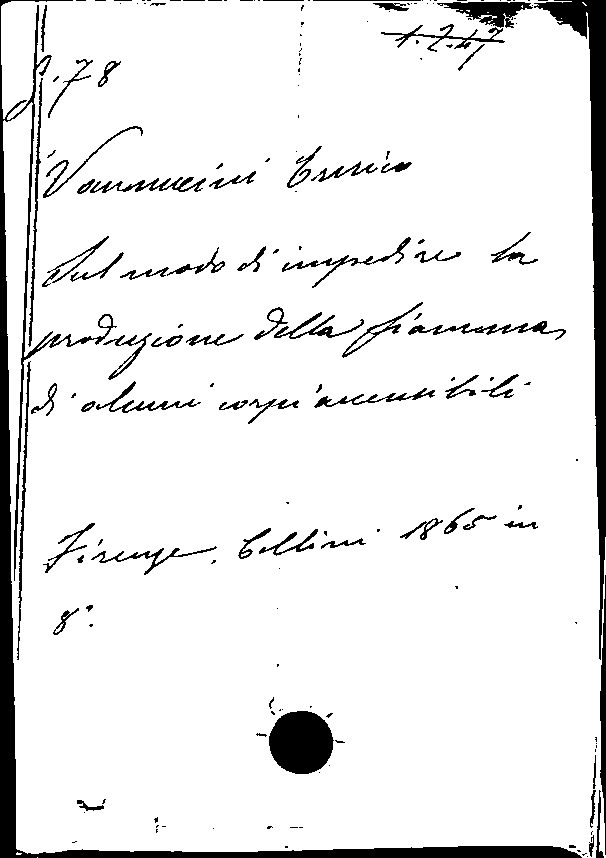 1.2.47
S.78
Vannuccini Enrico
Sul modo di impedire la
produzione della fiamma
di alcuni corpi accensibili
Firenze, Cellini 1865 in
8°.